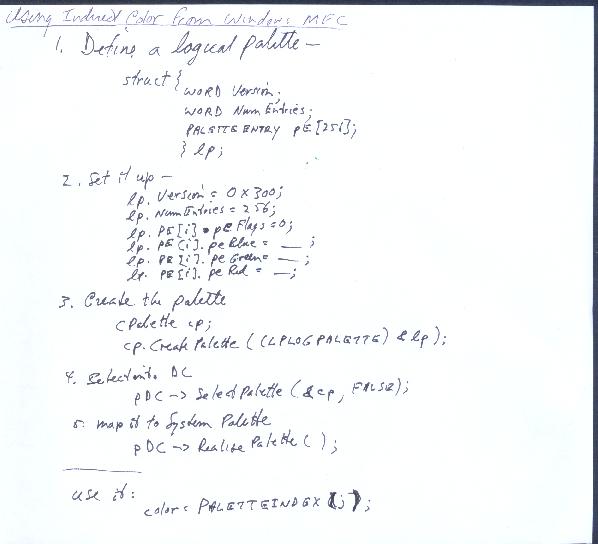 Using Indirect Color from Windows MFC
1. Define a logical palette —
struct {
WORD Version;
WORD NumEntries;
PALETTE ENTRY pE[251];
} lp;
2. Set it up —
lp. Version = 0x300;
lp. NumEntries = 256;
lp. PE[i] . peFlags = 0;
lp. PE[i]. peBlue = __ ;
lp. PE[i]. peGreen = __ ;
lp. PE[i]. peRed = __ ;
3. Create the palette
CPalette cp;
cp. Create Palette ( (LPLOGPALETTE) & lp);
4. Select into DC
pDC -> Select Palette (&cp, FALSE);
5. map it to System Palette
pDC -> Realize Palette ( );
use it:
color = PALETTEINDEX (j);